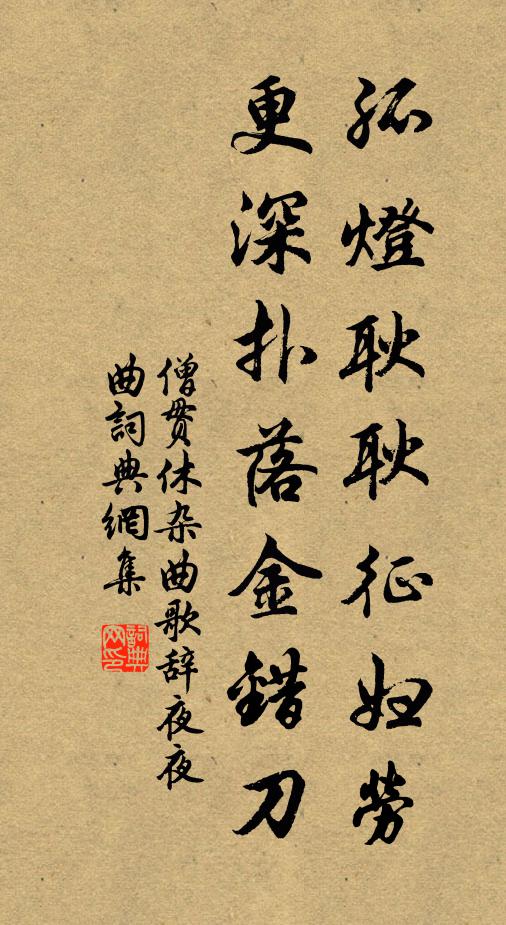 孤燈耿耿征婦勞
更深扑落金錯刀
僧貫休杂曲歌辞夜夜
曲詞典網集
詞典网印